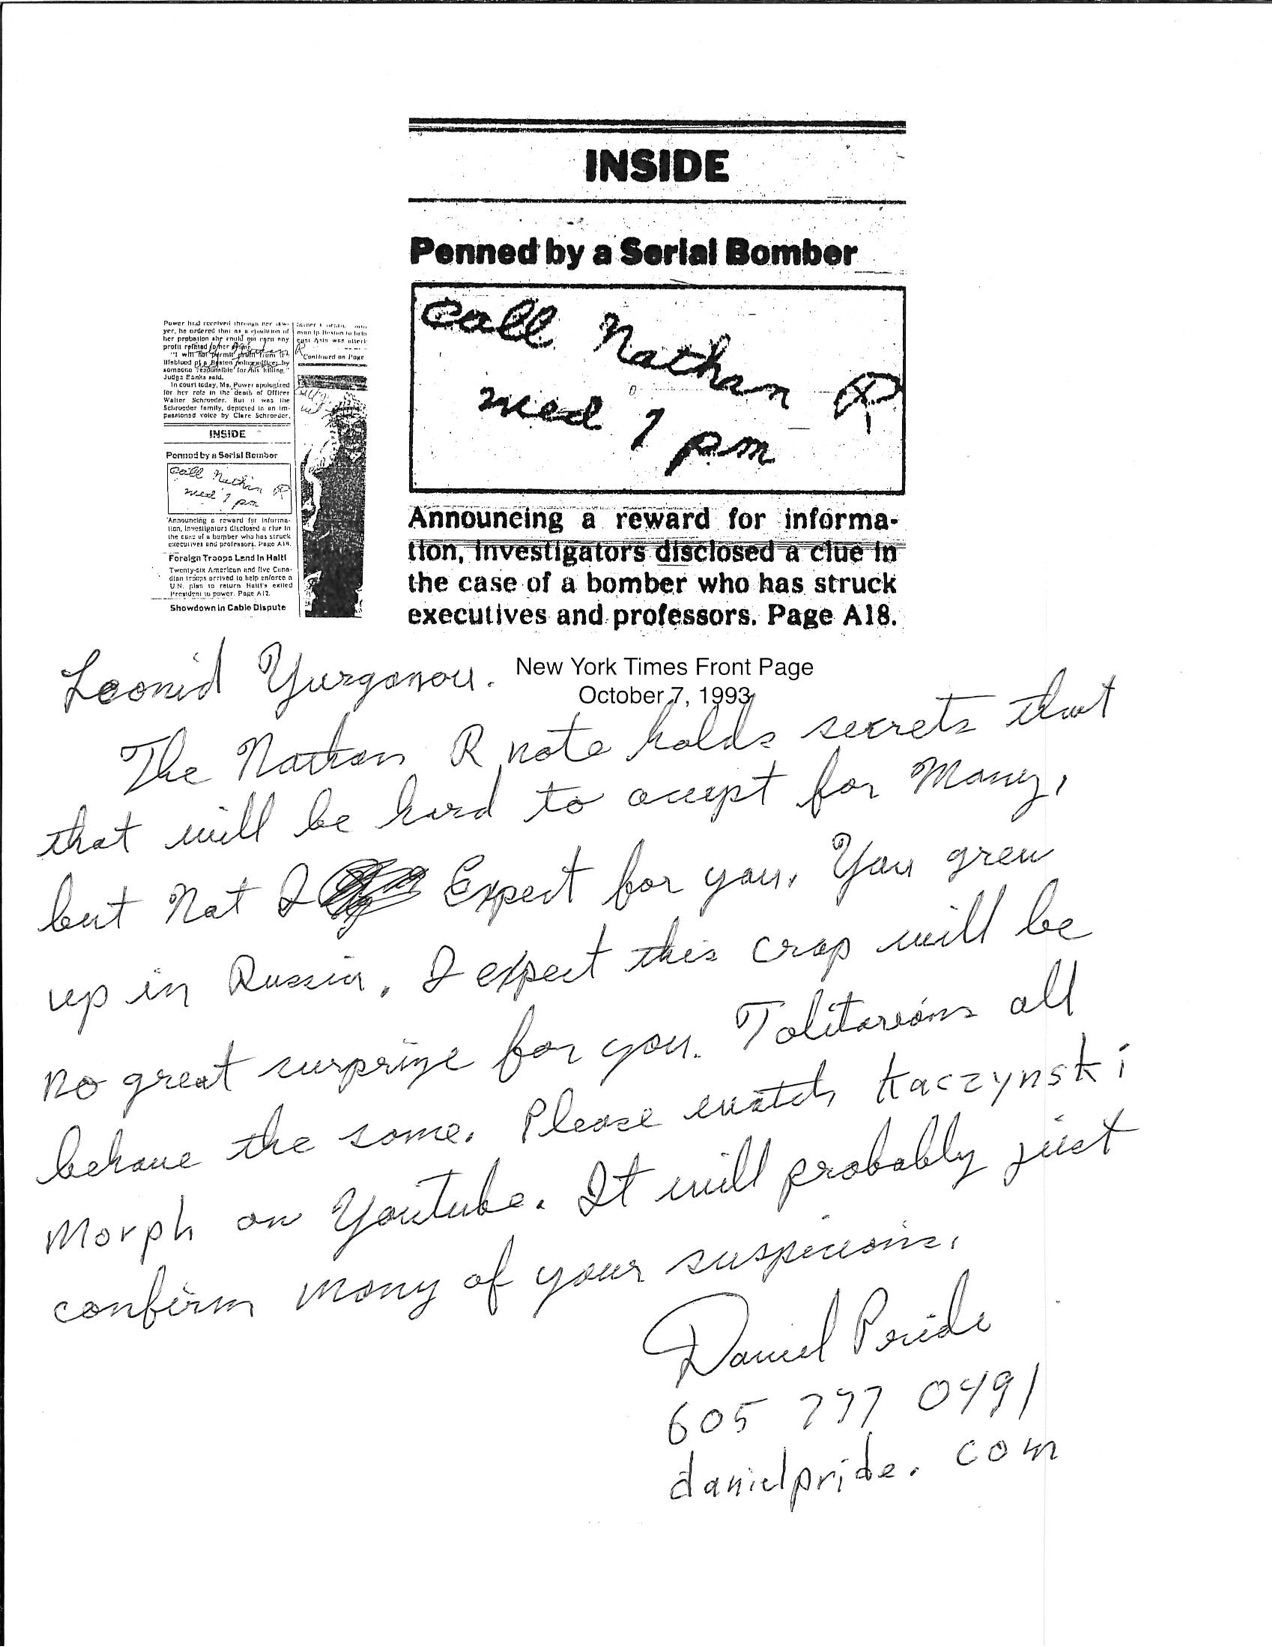 INSIDE
Penned by a Serial Bomber
Call Nathan R
Wed 7 pm
Announcing a reward for informa-
tion, investigators disclosed a clue in
the case of a bomber who has struck
executives and professors. Page A18.
Power had received through her law-
yer, he ordered that as a condition of
her probation she could not earn any
profit
"I will not permit
lifeblood of a Boston police officer by
someone responsible for his killing,"
Judge Banks said.
In court today, Ms. Power apologized
for her role in the death of Officer
Walter Schroeder. But it was the
Schroeder family, depicted in an im-
passioned voice by Clare Schroeder,
Continued on Page
INSIDE
Penned by a Serial Bomber
Call Nathan R
Wed 7 pm
Announcing a reward for informa-
tion, investigators disclosed a clue in
the case of a bomber who has struck
executives and professors. Page A18.
Foreign Troops Land in Haiti
Twenty-six American and five Cana-
dian troops arrived to help enforce a
U.N. plan to return Haiti's exiled
President to power. Page A12.
Showdown in Cable Dispute
New York Times Front Page
October 7, 1993
Leonid Yurganov.
The Nathan R note holds secrets that
that will be hard to accept for Many,
but Not I Expect for you. You grew
up in Russia. I expect this crap will be
no great surprize for you. Tolitarians all
behave the same. Please watch Kaczynski
Morph on Youtube. It will probably just
confirm many of your suspicions.
Daniel Pride
605 797 0491
danielpride.com